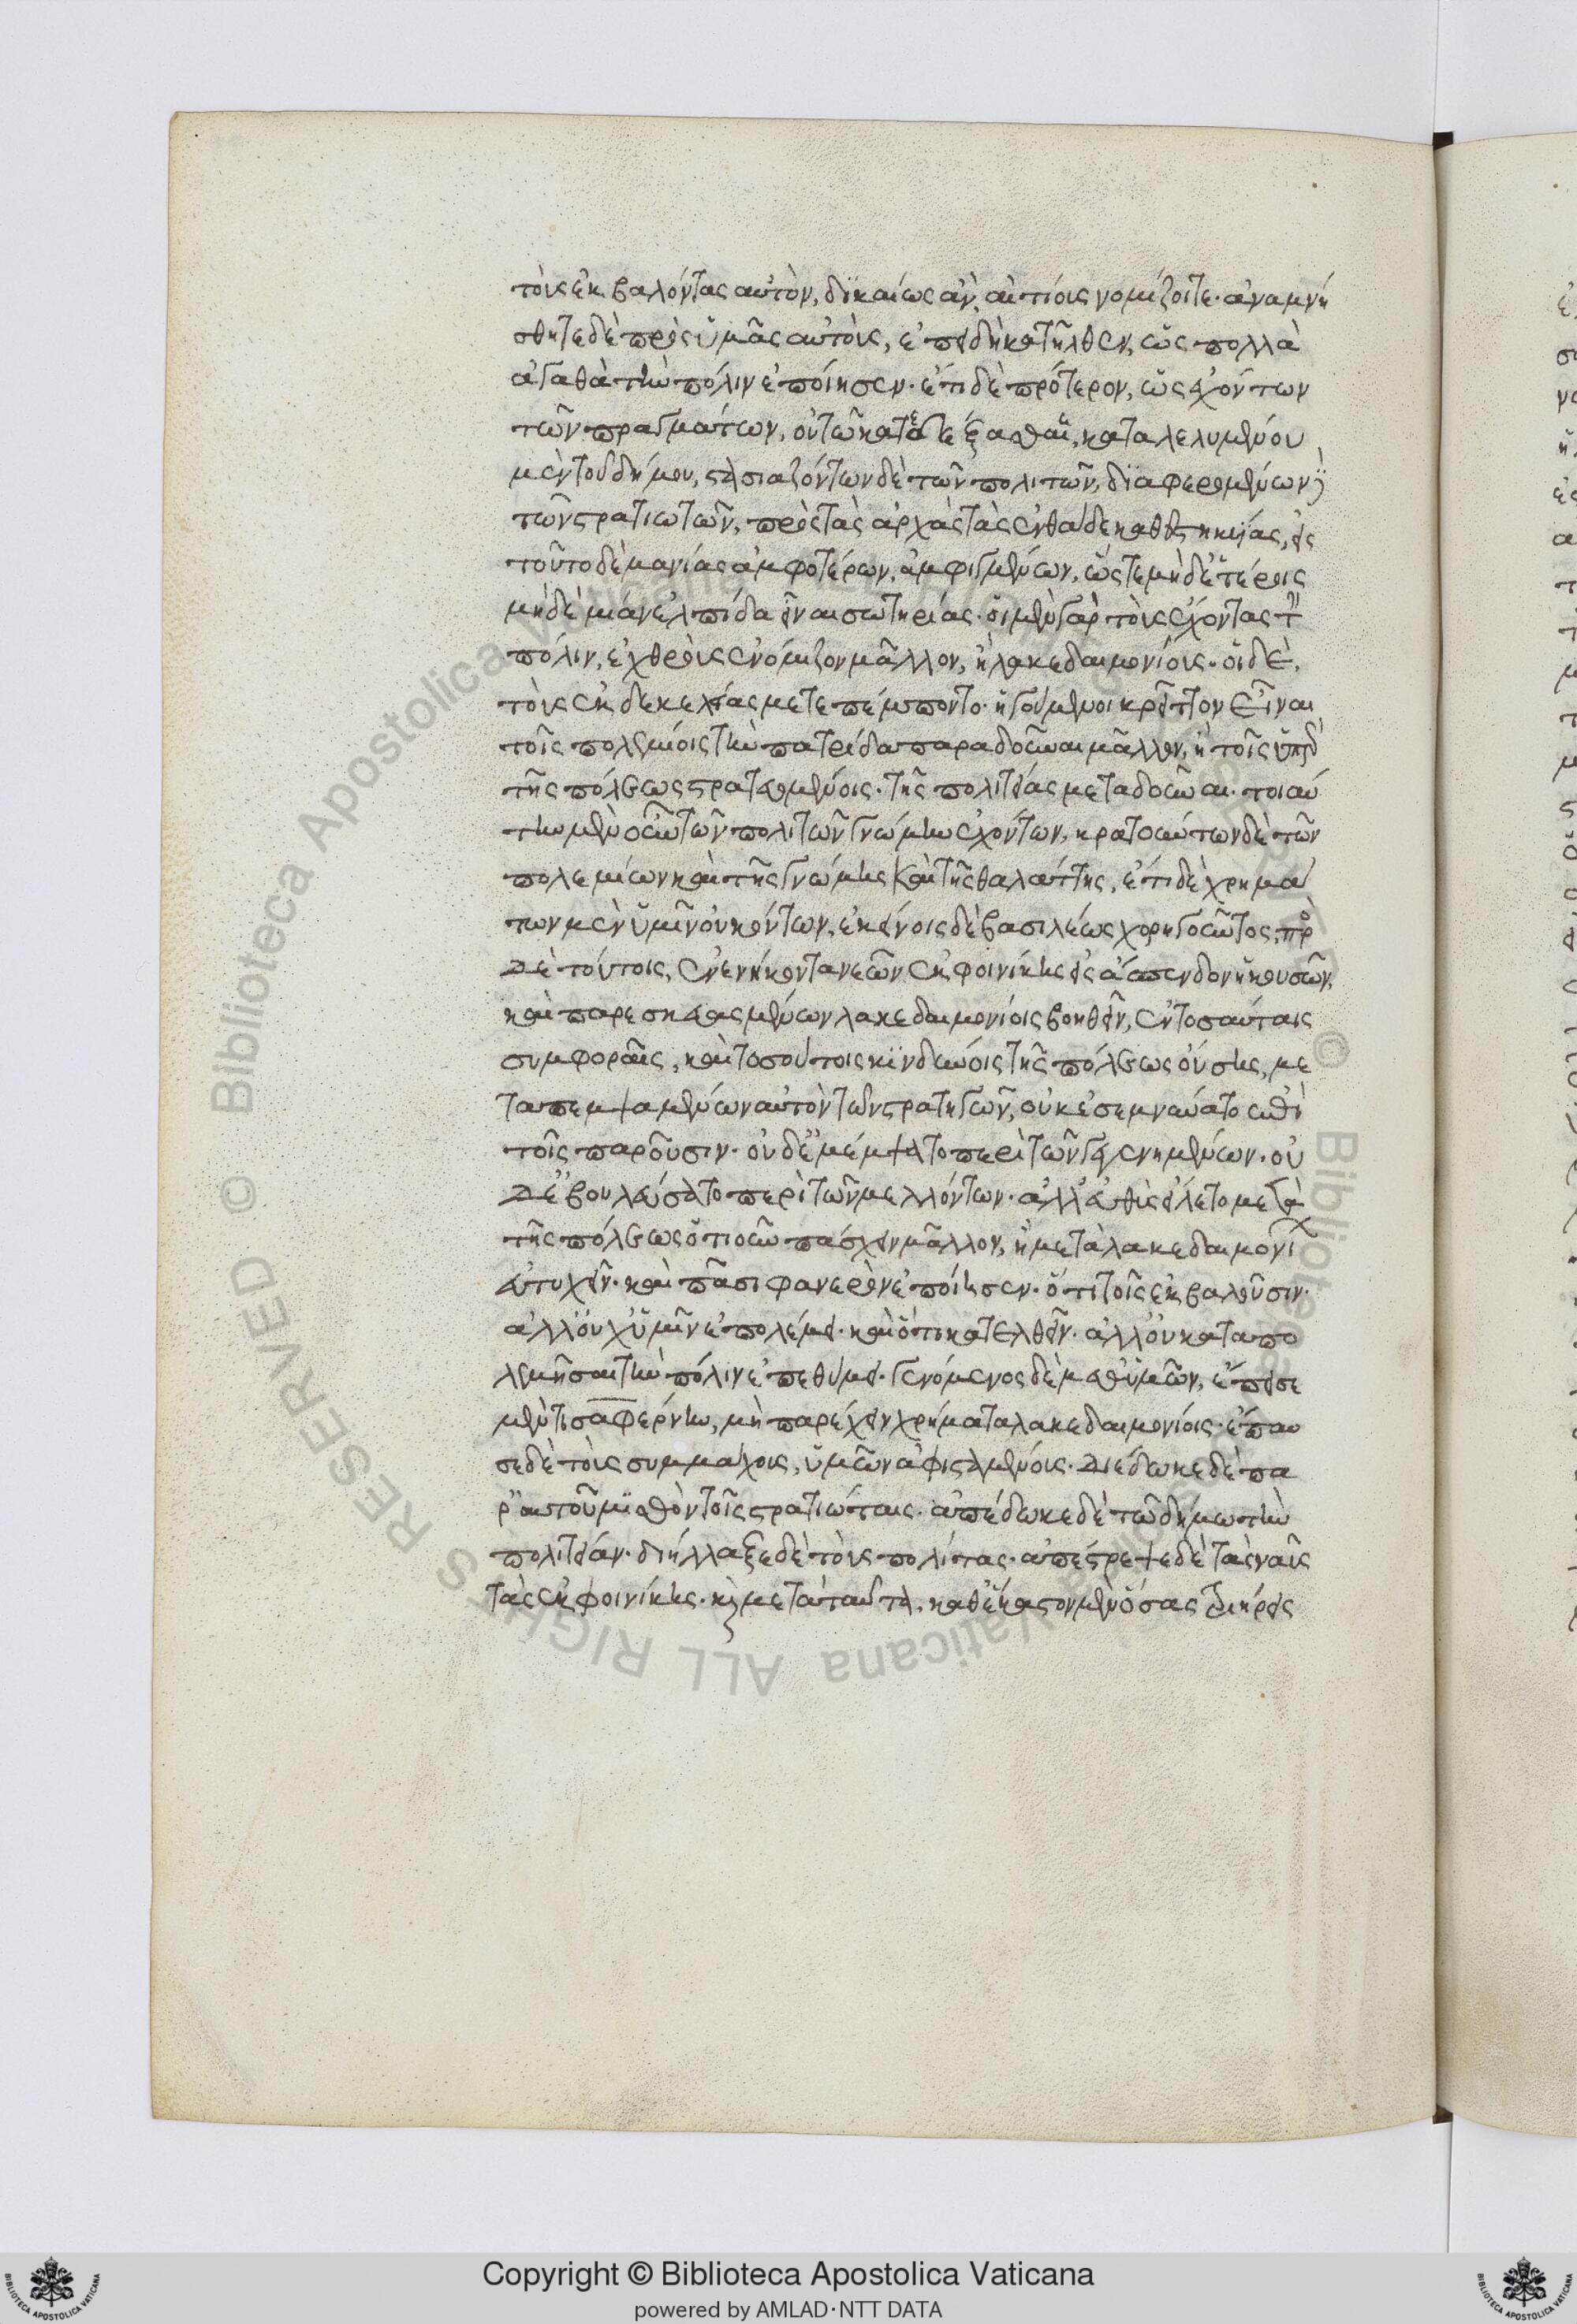 τοὺς ἐκβαλόντας αὐτὸν, δικαίως ἂν, αἰτίους νομίζοιτε· ἀναμνή
σθητε δὲ πρὸς ὑμᾶς αὐτοὺς, ἐπειδὴ κατῆλθεν, ὡς πολλὰ
ἀγαθὰ τὴν πόλιν ἐποίησεν· ἔτι δὲ πρότερον, ὡς ἐχόντων
τῶν πραγμάτων, αὐτῶ κατα καταλελυμένου
μὲν τοῦ δήμου, στασιαζόντων δὲ τῶν πολιτῶν, διαφερομένων
τῶν στρατιωτῶν, πρὸς τὰς ἀρχὰς τὰς ἐνθάδε καθεστηκυίας, εἰς
τοῦτο δὲ μανίας ἀμφοτέρων, ἀμφιγμένων, ὥστε μηδετέροις
μηδὲ μιὰν ἐλπίδα εἶναι σωτηρίας· οἱ μὲν γὰρ τοὺς ἔχοντας τὴν
πόλιν, ἐχθροὺς ἐνόμιζον μᾶλλον, ἢ λακεδαιμονίους· οἱ δὲ,
τοὺς ἐκ δεκελείας μετεπέμποντο· ἡγούμενοι κρεῖττον εἶναι
τοῖς πολεμίοις τὴν πατρίδα παραδοῦναι μᾶλλον, ἢ τοῖς ὑπὲρ
τῆς πόλεως στρατευομένοις· τῆς πολιτείας μεταδοῦναι· τοιαύ
την μὲν οὖν τῶν πολιτῶν γνώμην ἐχόντων, κρατούντων δὲ τῶν
πολεμίων καὶ τῆς γνώμης καὶ τῆς θαλάττης, ἔτι δὲ χρημά
των μὲν ὑμῖν οὐκ ὄντων, ἐκείνοις δὲ βασιλέως χορηγοῦντος, πρὸς
δὲ τούτοις, ἐνενήκοντα νεῶν ἐκ φοινίκης εἰς ἄσπενδον ἡκουσῶν,
καὶ παρεσκευασμένων λακεδαιμονίοις βοηθεῖν, ἐν τοσαύταις
συμφοραῖς, καὶ τοσούτοις κινδύνοις τῆς πόλεως οὔσης, με
ταπεμψαμένων αὐτὸν τῶν στρατηγῶν, οὐκ ἐσεμνύνατο ἐπὶ
τοῖς παροῦσιν· οὐδ' ἐμέμψατο περὶ τῶν γεγενημένων· οὐ
δ' ἐβουλεύσατο περὶ τῶν μελλόντων· ἀλλ' εὐθὺς εἵλετο μετὰ
τῆς πόλεως ὁτιοῦν πάσχειν μᾶλλον, ἢ μετὰ λακεδαιμονί
εὐτυχεῖν· καὶ πᾶσι φανερὸν ἐποίησεν· ὅτι τοῖς ἐκβαλοῦσιν·
ἀλλ' οὐχ ὑμῖν ἐπολέμει· καὶ ὅτι κατελθεῖν· ἀλλ' οὐ καταπο
λεμῆσαι τὴν πόλιν ἐπεθύμει· γενόμενος δὲ μεθ' ὑμῶν, ἔπεισε
μὲν τισαφέρνην, μὴ παρέχειν χρήματα λακεδαιμονίοις· ἔπαυ
σε δὲ τοὺς συμμάχους, ὑμῶν ἀφισταμένους· διέδωκε δὲ πα
ρ' αὑτοῦ μισθὸν τοῖς στρατιώταις· ἀπέδωκε δὲ τῶ δήμω τὴν
πολιτείαν· διήλλαξε δὲ τοὺς πολίτας· ἀπέστρεψε δὲ τὰς ναῦς
τὰς ἐκ φοινίκης· καὶ μετὰ ταῦτα, καθ' ἕκαστον μὲν ὅσας τριήρεις